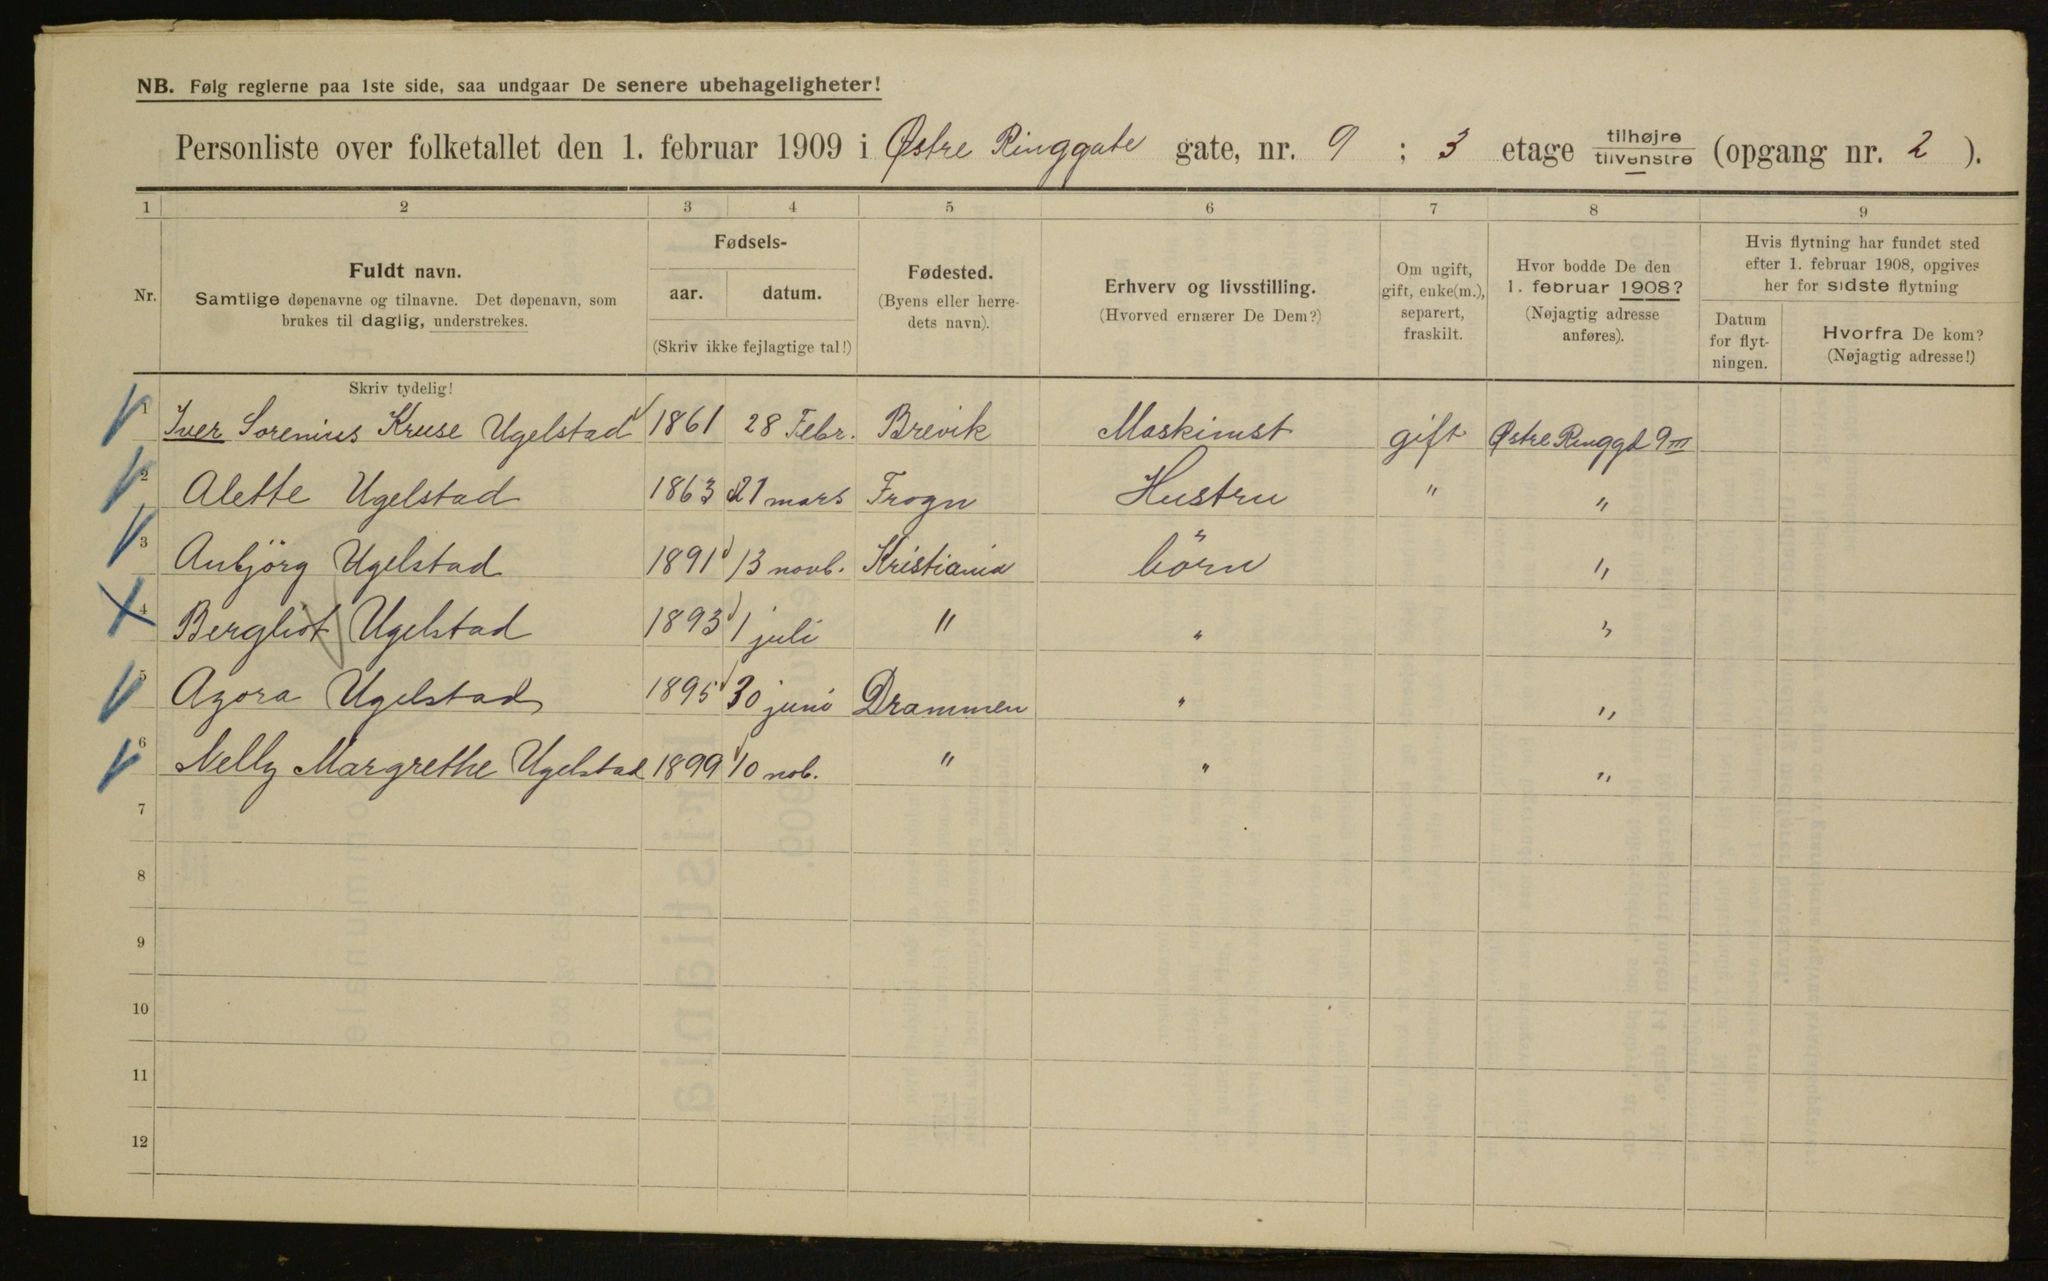 NB. Følg reglerne paa 1ste side, saa undgaar De senere ubehageligheter!
Personliste over folketallet den 1. februar 1909 i Østre Ringgate gate, nr. 9 ; 3 etage tilhøjre tilvenstre (opgang nr. 2 ).
1 2 3 4 5 6 7 8 9
Nr.
Fuldt navn.
Samtlige døpenavne og tilnavne. Det døpenavn, som
brukes til daglig, understrekes.
Fødsels-
aar. datum.
(Skriv ikke fejlagtige tal!)
Fødested.
(Byens eller herre-
dets navn).
Erhverv og livsstilling.
(Hvorved ernærer De Dem?)
Om ugift,
gift, enke(m.),
separert,
fraskilt.
Hvor bodde De den
1. februar 1908?
(Nøjagtig adresse
anføres).
Hvis flytning har fundet sted
efter 1. februar 1908, opgives
her for sidste flytning
Datum
for flyt-
ningen.
Hvorfra De kom?
(Nøjagtig adresse!)
Skriv tydelig!
1 Iver Sorenius Kruse Ugelstad 1861 28 Febr. Brevik Maskinist gift Østre Ringgd 9 III
2 Alette Ugelstad 1863 21 mars Frogn Hustru " "
3 Anbjörg Ugelstad 1891 13 novb. Kristiania börn "
4 Bergliot Ugelstad 1893 1 juli " " "
5 Azora Ugelstad 1895 30 juni Drammen " "
6 Nelly Margrethe Ugelstad 1899 10 nob. " " "
7
8
9
10
11
12